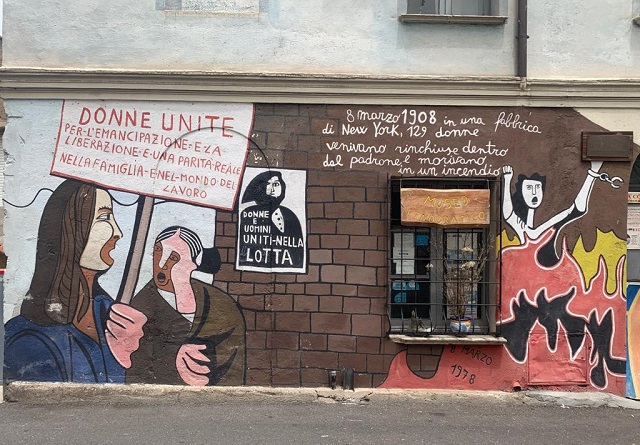 DONNE UNITE
PER-L'EMANCIPAZIONE-E-LA
LIBERAZIONE-E-UNA-PARITÀ-REALE
NELLA-FAMIGLIA-E-NEL-MONDO-DEL
LAVORO
DONNE
E
UOMINI
UNITI-NELLA
LOTTA
8 marzo 1908 in una fabbrica
di New York, 129 donne
venivano rinchiuse dentro
dal padrone, e morivano
in un incendio
8 MARZO
1978